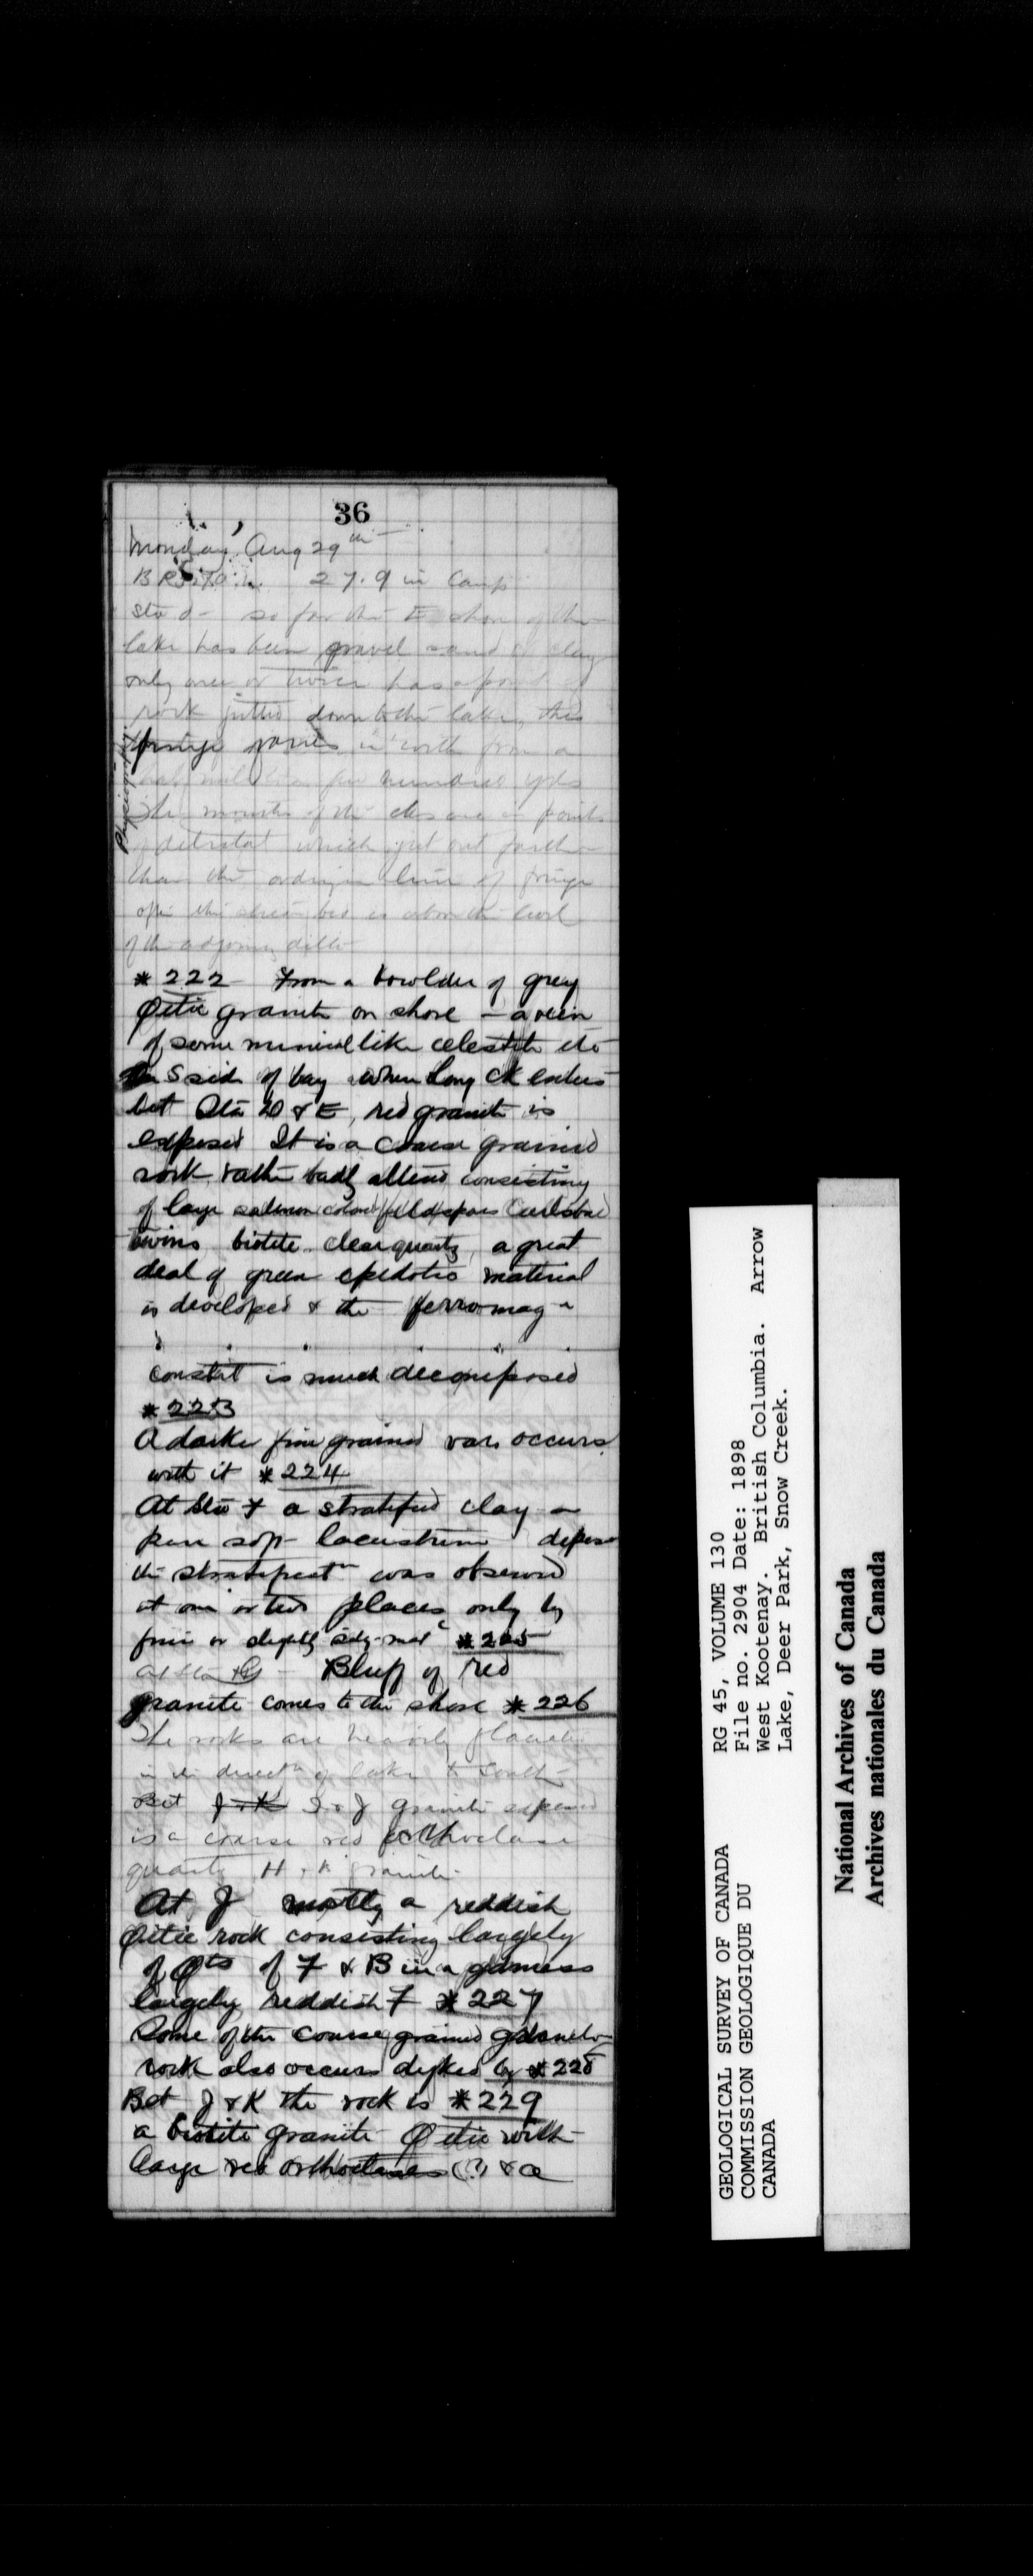 36
Monday, Aug 29th
27.9 in Camp
Sta d - so far the E shore of the
lake has been gravel sand or clay
only once or twice has a point of
rock jutted down to the lake, this
fringe varies in width from a
half mile to a few hundred yds
The mouths of the cks are in points
of detrital which jut out farther
than the ordinary line of fringe
often the stream bed is above the level
of the adjoining
Physiography.
*222 From a bowlder of grey
granite on shore - a vein
of some mineral like celestite etc
On S side of bay where Long Ck enters
bet Sta D & E, red granite is
exposed It is a coarse grained
rock rather badly altered consisting
of large salmon colored feldspars Carlsbad
twins biotite clear quartz, a great
deal of green epidotic material
is developed & the ferromag
constit is much decomposed
*223
A darker fine grained var. occurs
with it *224
At Sta F a stratified clay
locustrine deposit
the stratificatn was observed
at one or two places only by
finer or slightly sdy mat *225
At Sta G - Bluff of red
granite comes to the shore *226
The rocks are heavily glaciated
in the directn of lake to South
Bet J & K I & J granite exposed
is a coarse red orthoclase
quartz H & B granite
At J mostly a reddish
rock consisting largely
of of F & B in a gdmass
largely reddish F *227
Some of the coarse grained
rock also occurs dyked by *228
Bet J & K the rock is *229
a biotite granite with
large red orthoclases (?) & a
RG 45, VOLUME 130
File no. 2904 Date: 1898
West Kootenay. British Columbia. Arrow
Lake, Deer Park, Snow Creek.
GEOLOGICAL SURVEY OF CANADA
COMMISSION GEOLOGIQUE DU
CANADA
National Archives of Canada
Archives nationales du Canada